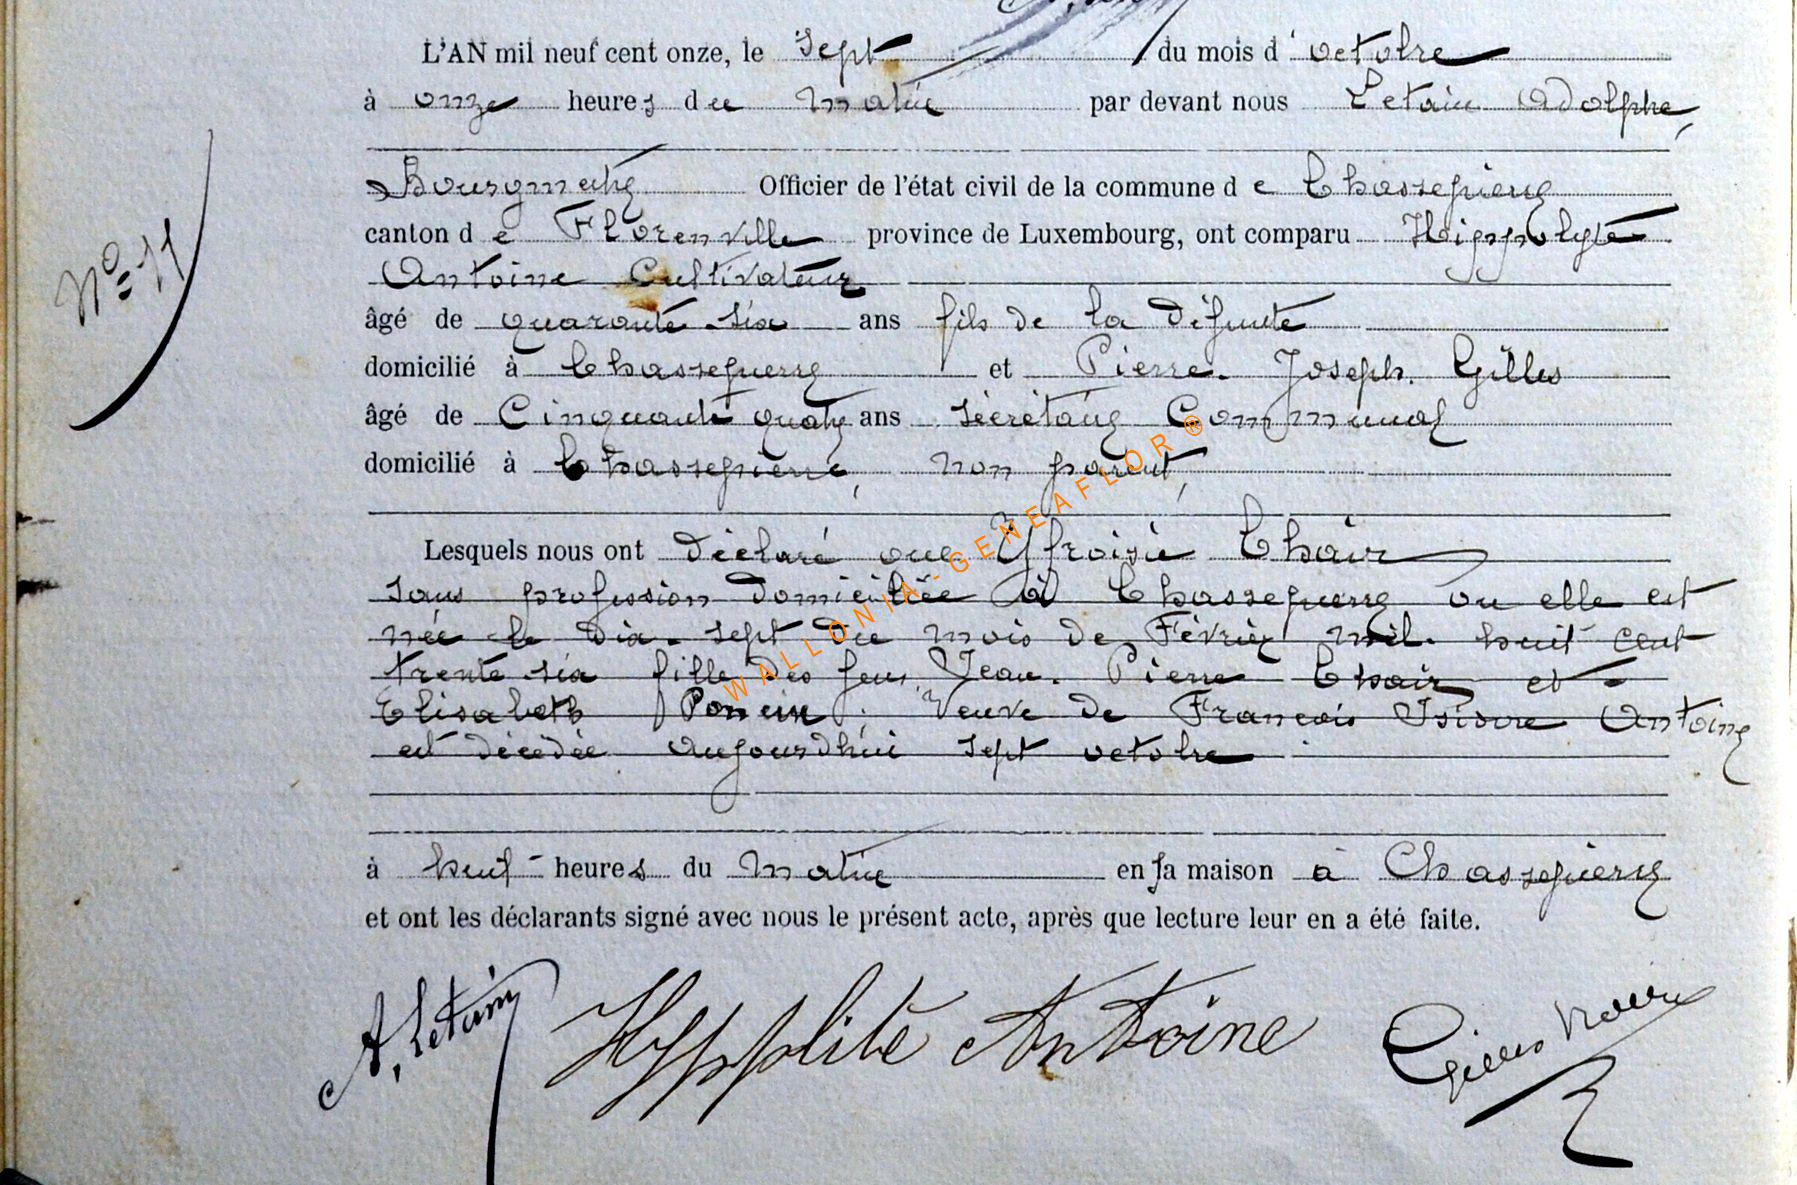 L'AN mil neuf cent onze, le sept du mois d'octobre
à onze heures du matin par devant nous Letain Adolphe,
Bourgmestre Officier de l'état civil de la commune de Chassepierre
canton de Florenville province de Luxembourg, ont comparu Hippolyte
Antoine Cultivateur
âgé de quarante six ans fils de la défunte
domicilié à Chassepierre et Pierre Joseph Gilles
âgé de Cinquante quatre ans secrétaire Communal
domicilié à Chassepierre, non parent,
N° 11
Lesquels nous ont déclaré que Yfroisie Thair
sans profession domiciliée à Chassepierre ou elle est
née le dix-sept du mois de Février mil huit cent
trente six fille des feus Jean Pierre Thair et
Elisabeth Poncin ; Veuve de François Isidore Antoine
est décédée aujourd'hui sept octobre
à huit heures du matin en sa maison à Chassepierre
et ont les déclarants signé avec nous le présent acte, après que lecture leur en a été faite.
A. Letain Hyppolite Antoine Gilles
WALLONIA-GENEAFLOR®